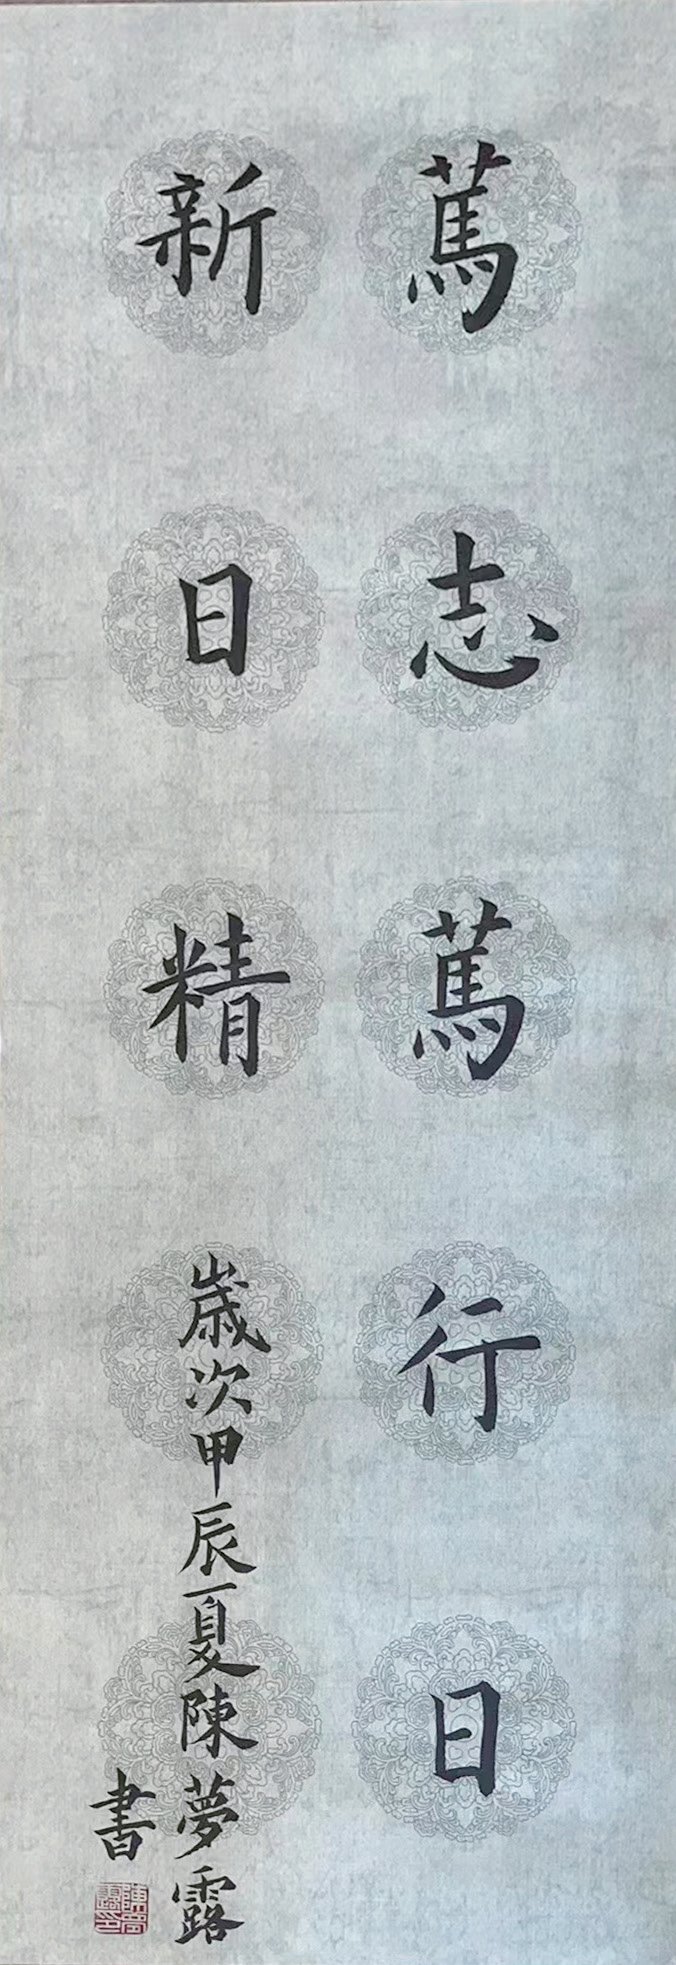 篤志篤行日
新日精
歲次甲辰夏陳夢露
書
陳夢
露印